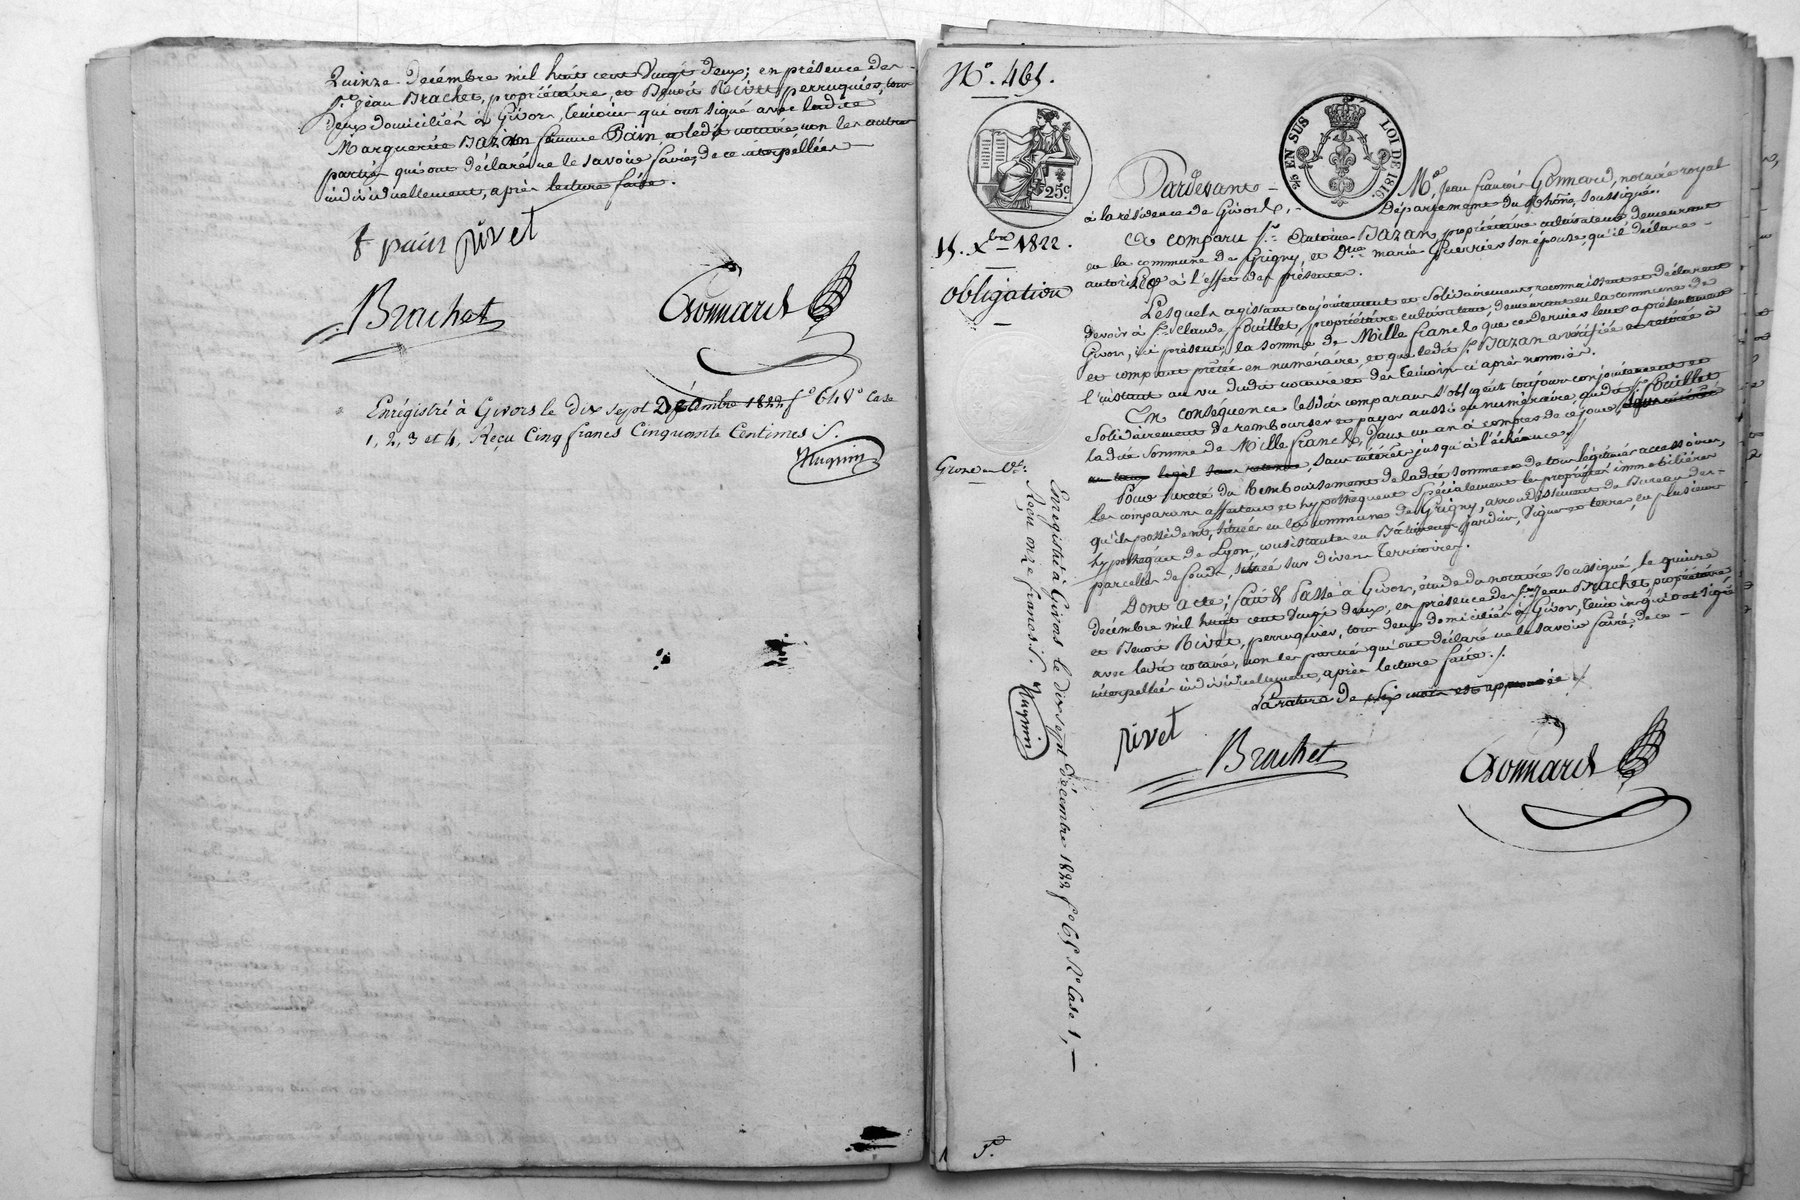 Quinze Décembre mil huit cent vingt deux; en présence des
Srs. jean Brachet, propriétaire, et Benoit Rivet perruquier, tous
deux domiciliés à Givors, témoins qui ont signé avec ladite
Marguerite Bazan femme Pain et ledit notaire non les autres
parties qui ont déclaré ne le savoir faire, de ce interpellées
individuellement, après lecture faite.
f pain rivet
Brachet Gonnard
Enrégistré à Givors le dix sept Décembre 1822 fo 64 Vo Case
1, 2, 3 et 4, Reçu Cinq francs Cinquante Centimes
Huguin
No. 465.
25c.
EN SUS
LOI DE 1816
15. Xbre 1822.
Obligation
Pardevant Me. Jean françois Gonnard, notaire royal
à la résidence de Givors, Département du Rhône, soussigné.
Ont comparu Sr. Antoine Bazan, propriétaire cultivateur demeurant
en la commune de Grigny, et Dme marie Guerrier son épouse, qu'il déclare
autoriser à l'effet des présentes.
Lesquels agissant conjointement et solidairement reconnaissent et déclarent
devoir à Sr. Claude fouillet, propriétaire cultivateur, demeurant en la commune de
Givors, ici présent, la somme de Mille francs que ce dernier leur a présentement
et comptant prêtée en numéraire, et que ledit Sr. Bazan a vérifiée et retirée à
l'instant au vu dudit notaire et des témoins ci après nommés.
En conséquence lesdits comparans s'obligent toujours conjointement et
solidairement de rembourser et payer aussi en numéraire, audit Sr. fouillet
ladite somme de Mille francs, dans un an à compter de ce jour,
sans intérêts jusqu'à l'échéance.
Pour sureté du Remboursement de ladite somme et de tous légitimes accessoires,
les comparans affectent et hypothèquent spécialement les propriétés immobilières
qu'ils possèdent, situées en la commune de Grigny, arrondissement du Bureau des
hypothèques de Lyon, consistantes en Bâtimens, jardin, vignes et terres, en plusieurs
parcelles de fonds, situé sur divers Territoires.
Dont acte; fait & Passé à Givors, étude du notaire soussigné, le quinze
décembre mil huit cent vingt deux, en présence des Srs. jean Brachet, propriétaire
et Benoit Rivet, perruquier, tous deux domiciliés à Givors, témoins qui ont signé
avec ledit notaire, non les parties qui ont déclaré ne le savoir faire, de ce
interpellées individuellement, après lecture faite.
La rature de six mots est approuvée
rivet
Brachet
Gonnard
Enregistré à Givors le dix sept décembre 1822 fo 65 Ro Case 1,
Reçu onze francs
Huguin